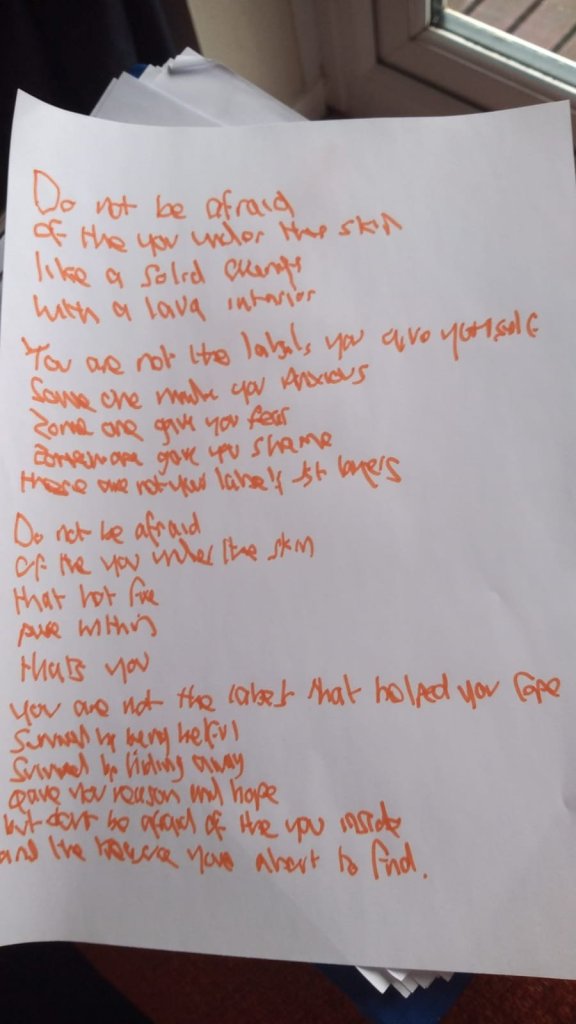 Do not be afraid
of the you under the skin
like a solid
with a lava interior
You are not the labels you give yourself
Some are made you Anxious
Zome are give you fear
are gave you shame
these are not your labels, layers
Do not be afraid
Of the you under the skin
that hot fire
pure within
thats you
you are not the labels that helped you cope
Survived by being helpful
Survived by hiding away
gave you reason and hope
but dont be afraid of the you inside
and the treasure youre about to find.